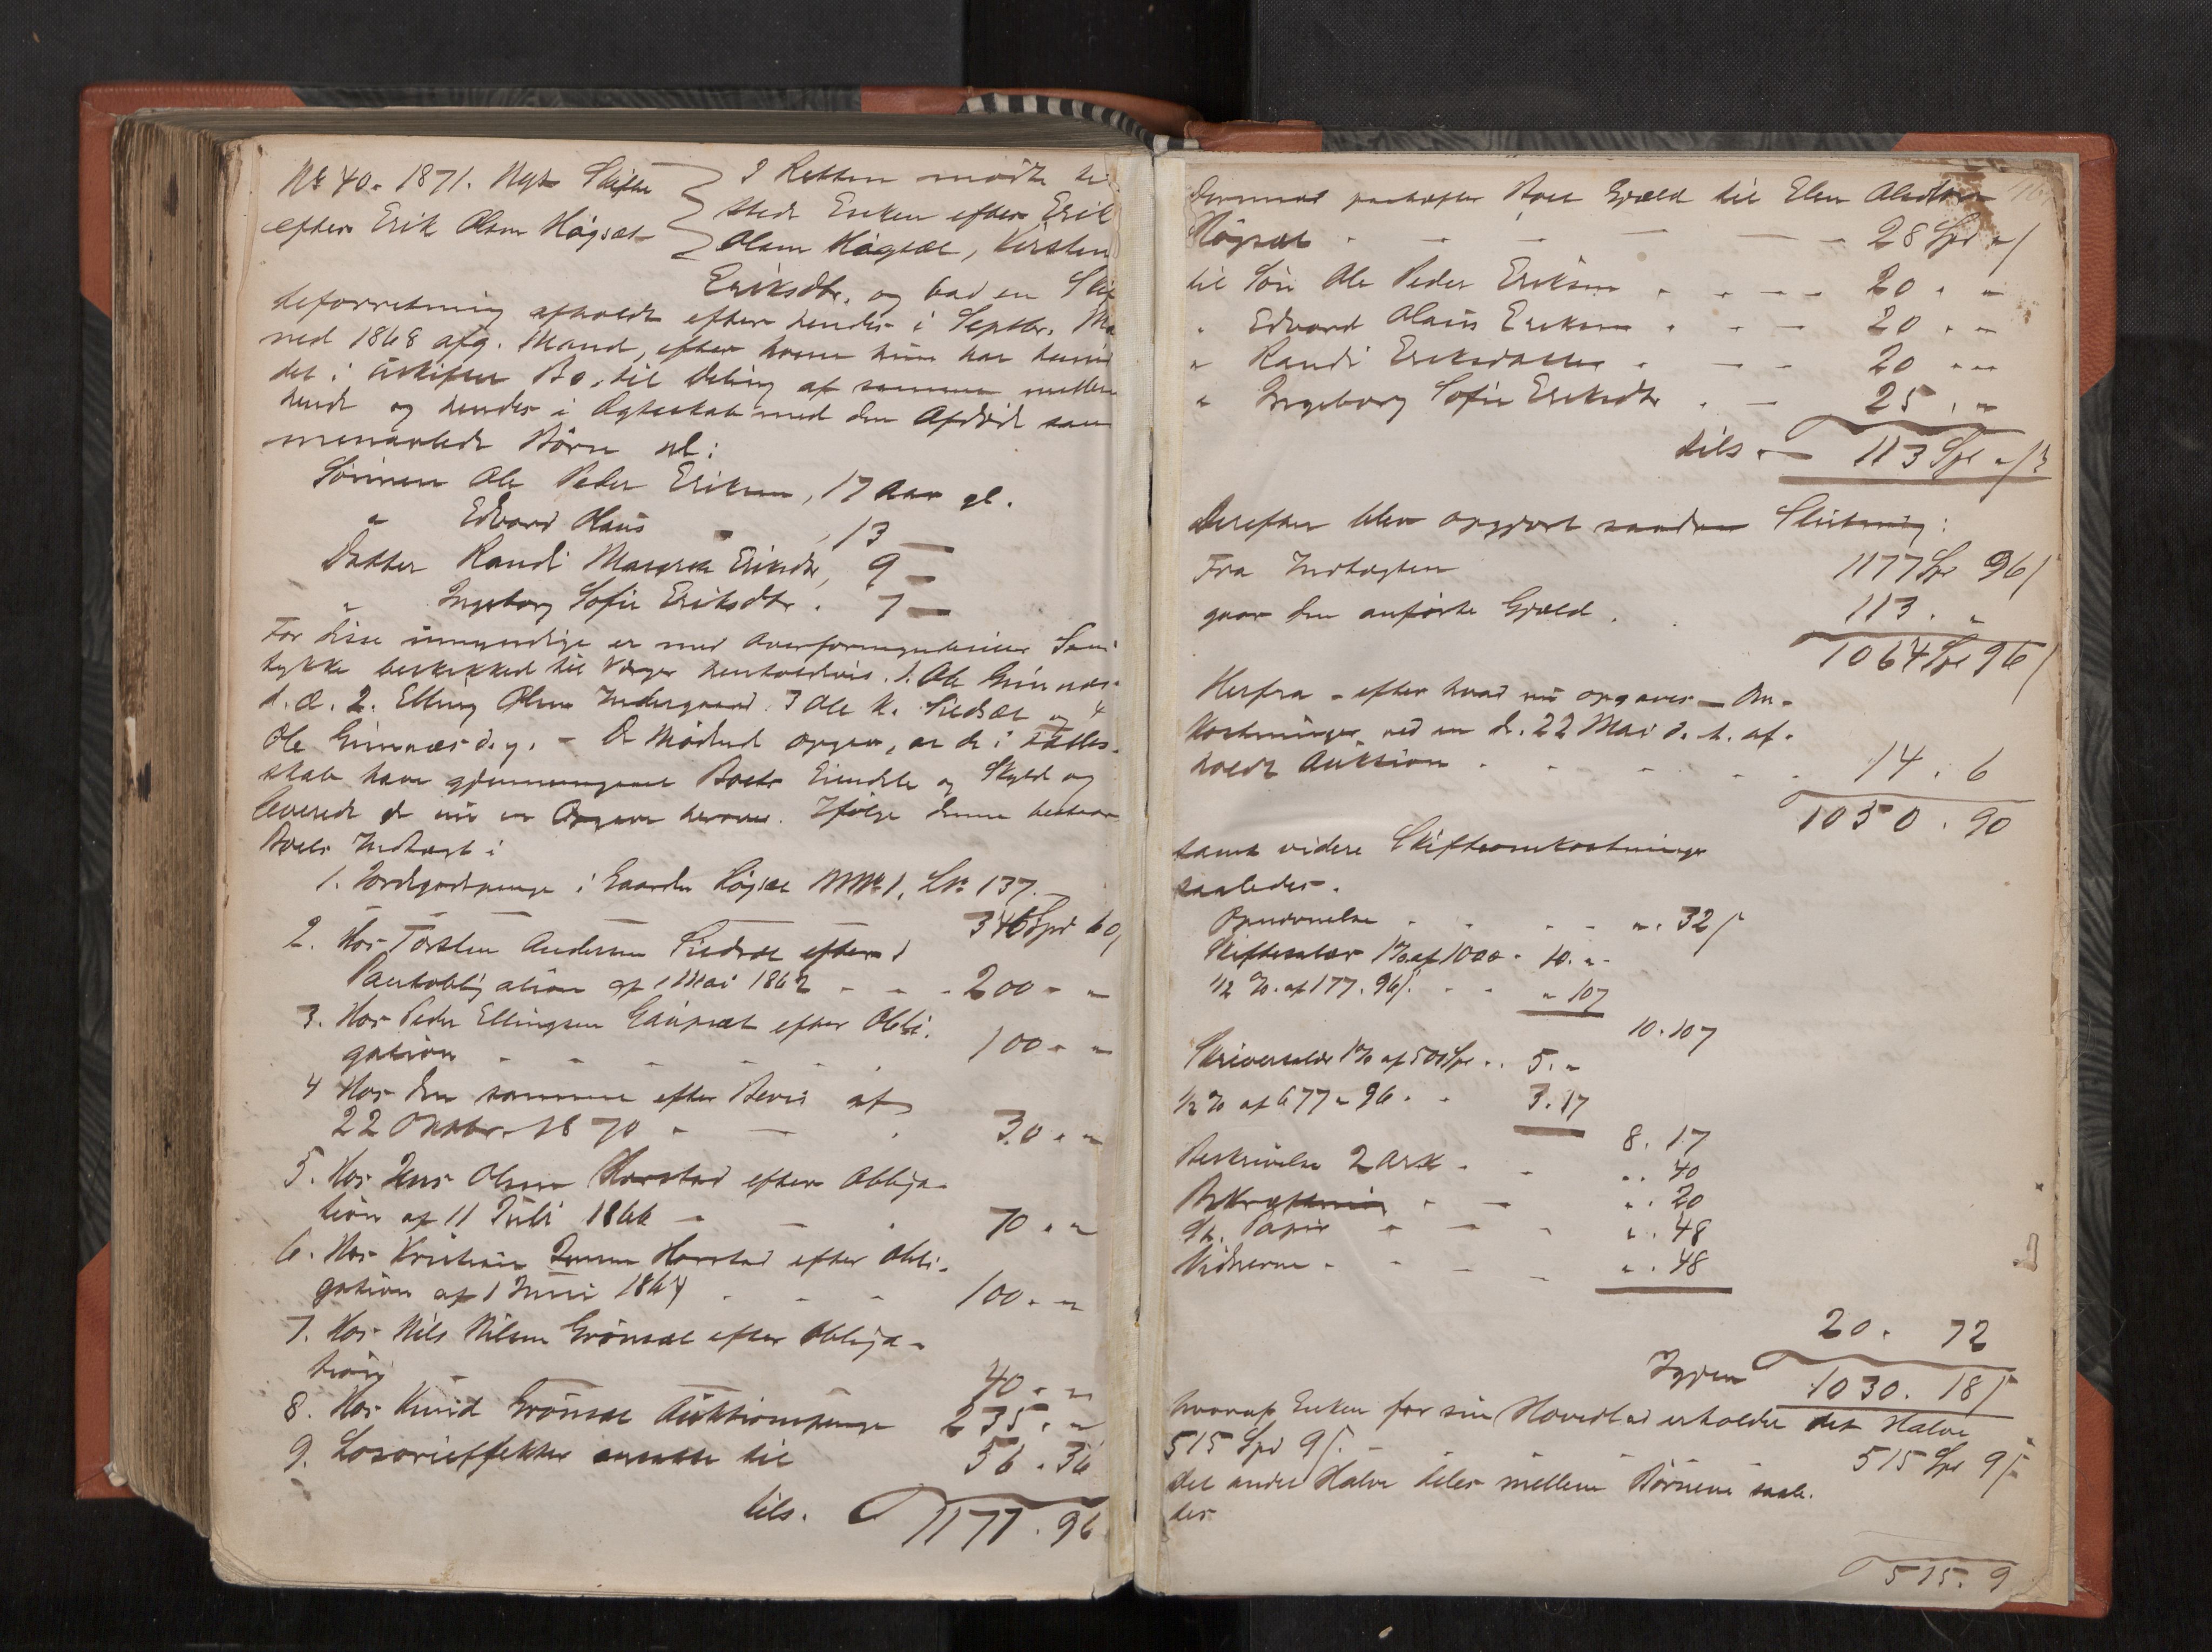 No 40. 1871. Nyt Skifte
efter Erik Olsen Högset
I Retten mödte til
stede Enken efter Erik
Olsen Högset, Kirsten
Eriksdtr. og bad en Skif
teforretning afholdt efter hendes i Septbr. Maa
ned 1868 afg. Mand, efter hvem hun har hensid
det i uskiftet Bo, til Deling af samme mellem
hende og hendes i Ægteskab med den Afdöde sam
menavlede Börn nl:
Sönnen Ole Peder Eriksen, 17 Aar gl.
" Edvard Olaus " , 13 —
Datter Randi Margrete Eriksdtr, 9 —
" Ingeborg Sofie Eriksdtr. 7 —
For disse umyndige er med Overformynderiets Sam
tykke beskikket til Værger henholdsvis. 1. Ole Grimnæs
d. æ. 2. Elling Olsen Indergaard 3 Ole K. Sædset og 4
Ole Grimnæs d. y. – De Mödende opgav, at de i Fælles-
skab have gjennemgaaet Boets Eiendele og Skyld og
leverede de nu en Opgave herover. Ifölge denne bestaar
Boets Indtægt i
1. Jordgodspenge i Gaarden Högset MNo 1, LNo 137.
346 Spd 60
2. Hos Torsten Andersen Sædset efter
Pantobligation af 1 Mai 1862 - - - 200 " "
3. Hos Peder Ellingsen Gaupset efter Obli-
gation - - - - - 100 " "
4 Hos den samme efter Bevis af
22 Oktbr. 1870 - - - 30 " "
5. Hos Jens Olsen Harstad efter Obliga-
tion af 11 Juli 1866 - - - 70 " "
6. Hos Kristian Jensen Harstad efter Obli-
gation af 1 Juni 1864 - - - 100 " "
7. Hos Nils Nilsen Grönset efter Obliga-
tion 40 " "
8. Hos Knud Grönset Auktionspenge 235 " "
9. Lösörieffekter ansatte til 56 . 36
tils. 1177 . 96
Derimod paahefter Boet Gjæld til Elen Olesdtr
Högset - - - - - 28 Spd "
til Sön Ole Peder Eriksen - - - - 20 " "
" Edvard Olaus Eriksen - - - 20 " "
" Randi Eriksdatter - - - 20 " "
" Ingeborg Sofie Eriksdtr - - 25 " "
tils - 113 Spd " ß
Derefter blev opgjort saadan Slutning:
Fra Indtægten 1177 Spd 96 ß
gaar den anförte Gjæld . . 113 . "
1064 Spd 96 ß
Herfra - efter hvad nu opgaves - Om-
kostninger ved en d. 22 Mai d. A. af-
holdt Auktion - - - - - 14 . 6
1050 . 90
samt videre Skifteomkostninger
saaledes.
Opnævnelse - - - - - ". 32 ß
Skiftesalær 1% af 1000 - 10. "
1/2 %. af 177. 96 ß. - - " 107
10. 107
Skriversalær 1% af 500 Spd .. 5. "
1/2 % af 677 " 96 . - 3. 17
8. 17
Beskrivelse 2 Ark - - ". 40
Bekræftning - - ". 20
St. Papir - - - ". 48
Vidnerne - - - - ". 48
20. 72
Igjen 1030. 18 ß
hvoraf Enken for sin Hovedlod erholder det Halve
515 Spd 9 ß. - - - - 515 Spd 9 ß
det andet Halve deles mellem Börnene saale-
des
515. 9